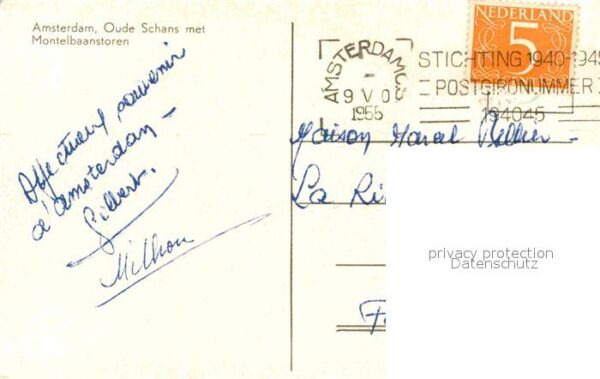 Amsterdam, Oude Schans met
Montelbaanstoren
Affectueux souvenir
d'Amsterdam -
Gilbert.
Milhou
NEDERLAND
5
AMSTERDAM CS
9 V 0
1955
STICHTING 1940-1945
POSTGIRONUMMER
194045
Maison Marcel
La
privacy protection
Datenschutz